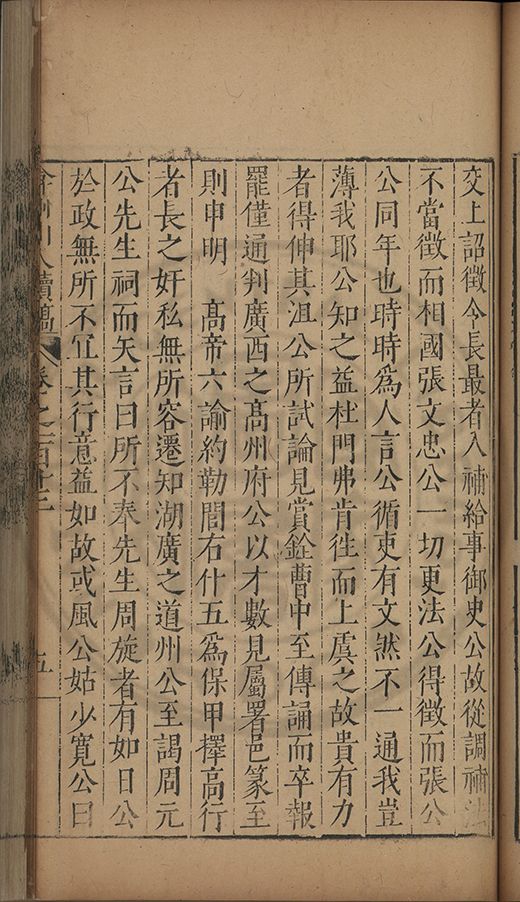 交上詔徵令長最者入補給事御史公故從調補法
不當徵而相國張文忠公一切更法公得徵而張公
公同年也時時為人言公循吏有文然不一通我豈
薄我耶公知之益杜門弗肯徃而上虞之故貴有力
者得伸其沮公所試論見賞銓曹中至傳誦而卒報
罷僅通判廣西之高州府公以才數見屬署邑篆至
則申明 高帝六諭約勒閭右什五為保甲擇高行
者長之奸私無所容遷知湖廣之道州公至謁周元
公先生祠而矢言曰所不奉先生周旋者有如日公
於政無所不宜其行意益如故或風公姑少寛公曰
弇州山人續稿 卷之一百
五